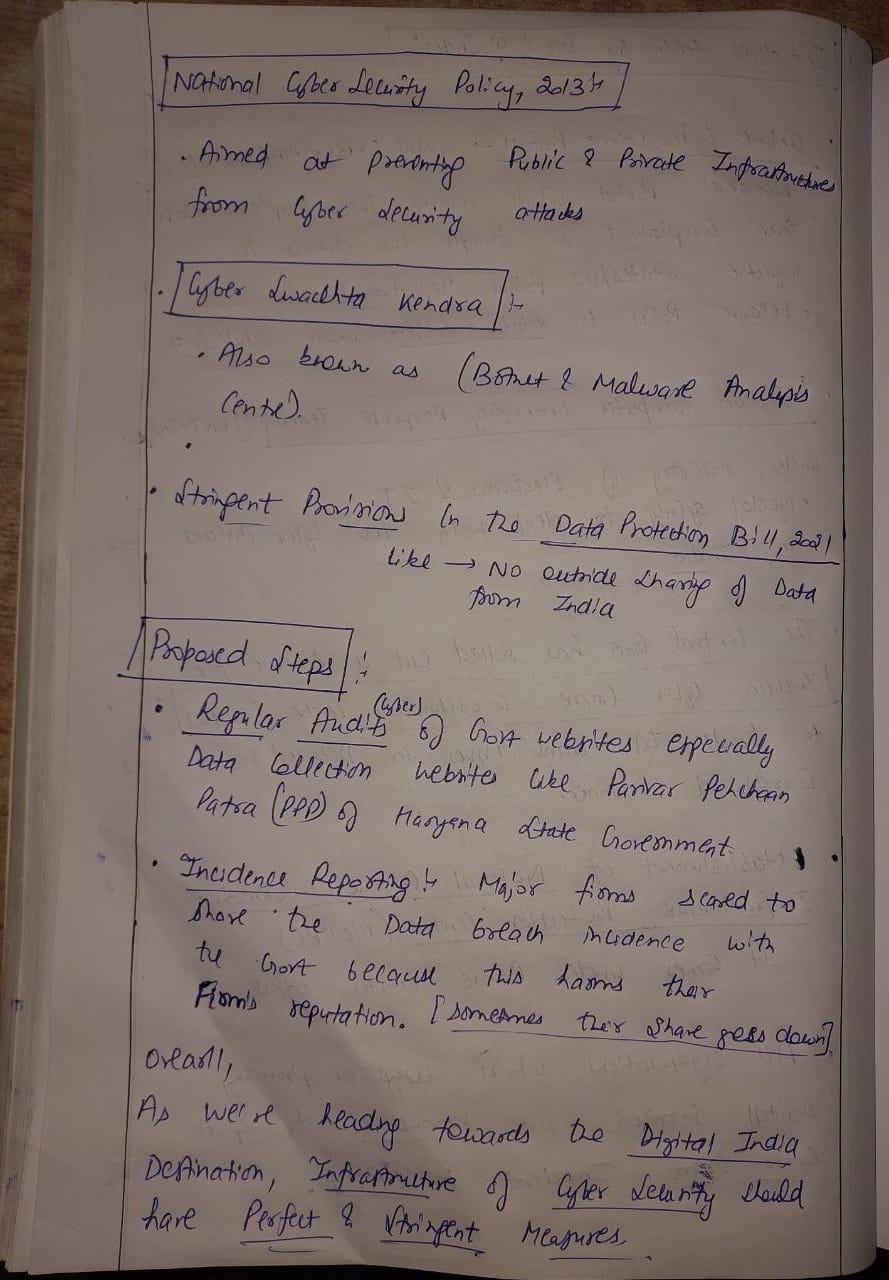 National Cyber Security Policy, 2013 :-
• Aimed at preventing Public & Private Infrastructures
from Cyber Security attacks
• Cyber Swachhta Kendra :-
• Also known as (Botnet & Malware Analysis
Centre).
• Stringent Provisions In the Data Protection Bill, 2021
like → No outside sharing of Data
from India
Proposed Steps :-
• Regular Audits (Cyber) of Govt websites especially
Data Collection websites like Parivar Pehchaan
Patra (PPP) of Haryana State Government.
• Incidence Reporting :- Major firms scared to
share the Data breach incidence with
the Govt because this harms their
Firm's reputation. [Sometimes their share goes down].
Overall,
As we're heading towards the Digital India
Destination, Infrastructure of Cyber Security should
have Perfect & Stringent Measures.